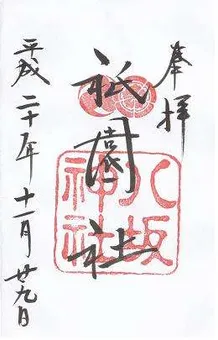 奉拝
祇園社
八坂
神社
平成二十年十一月廿九日